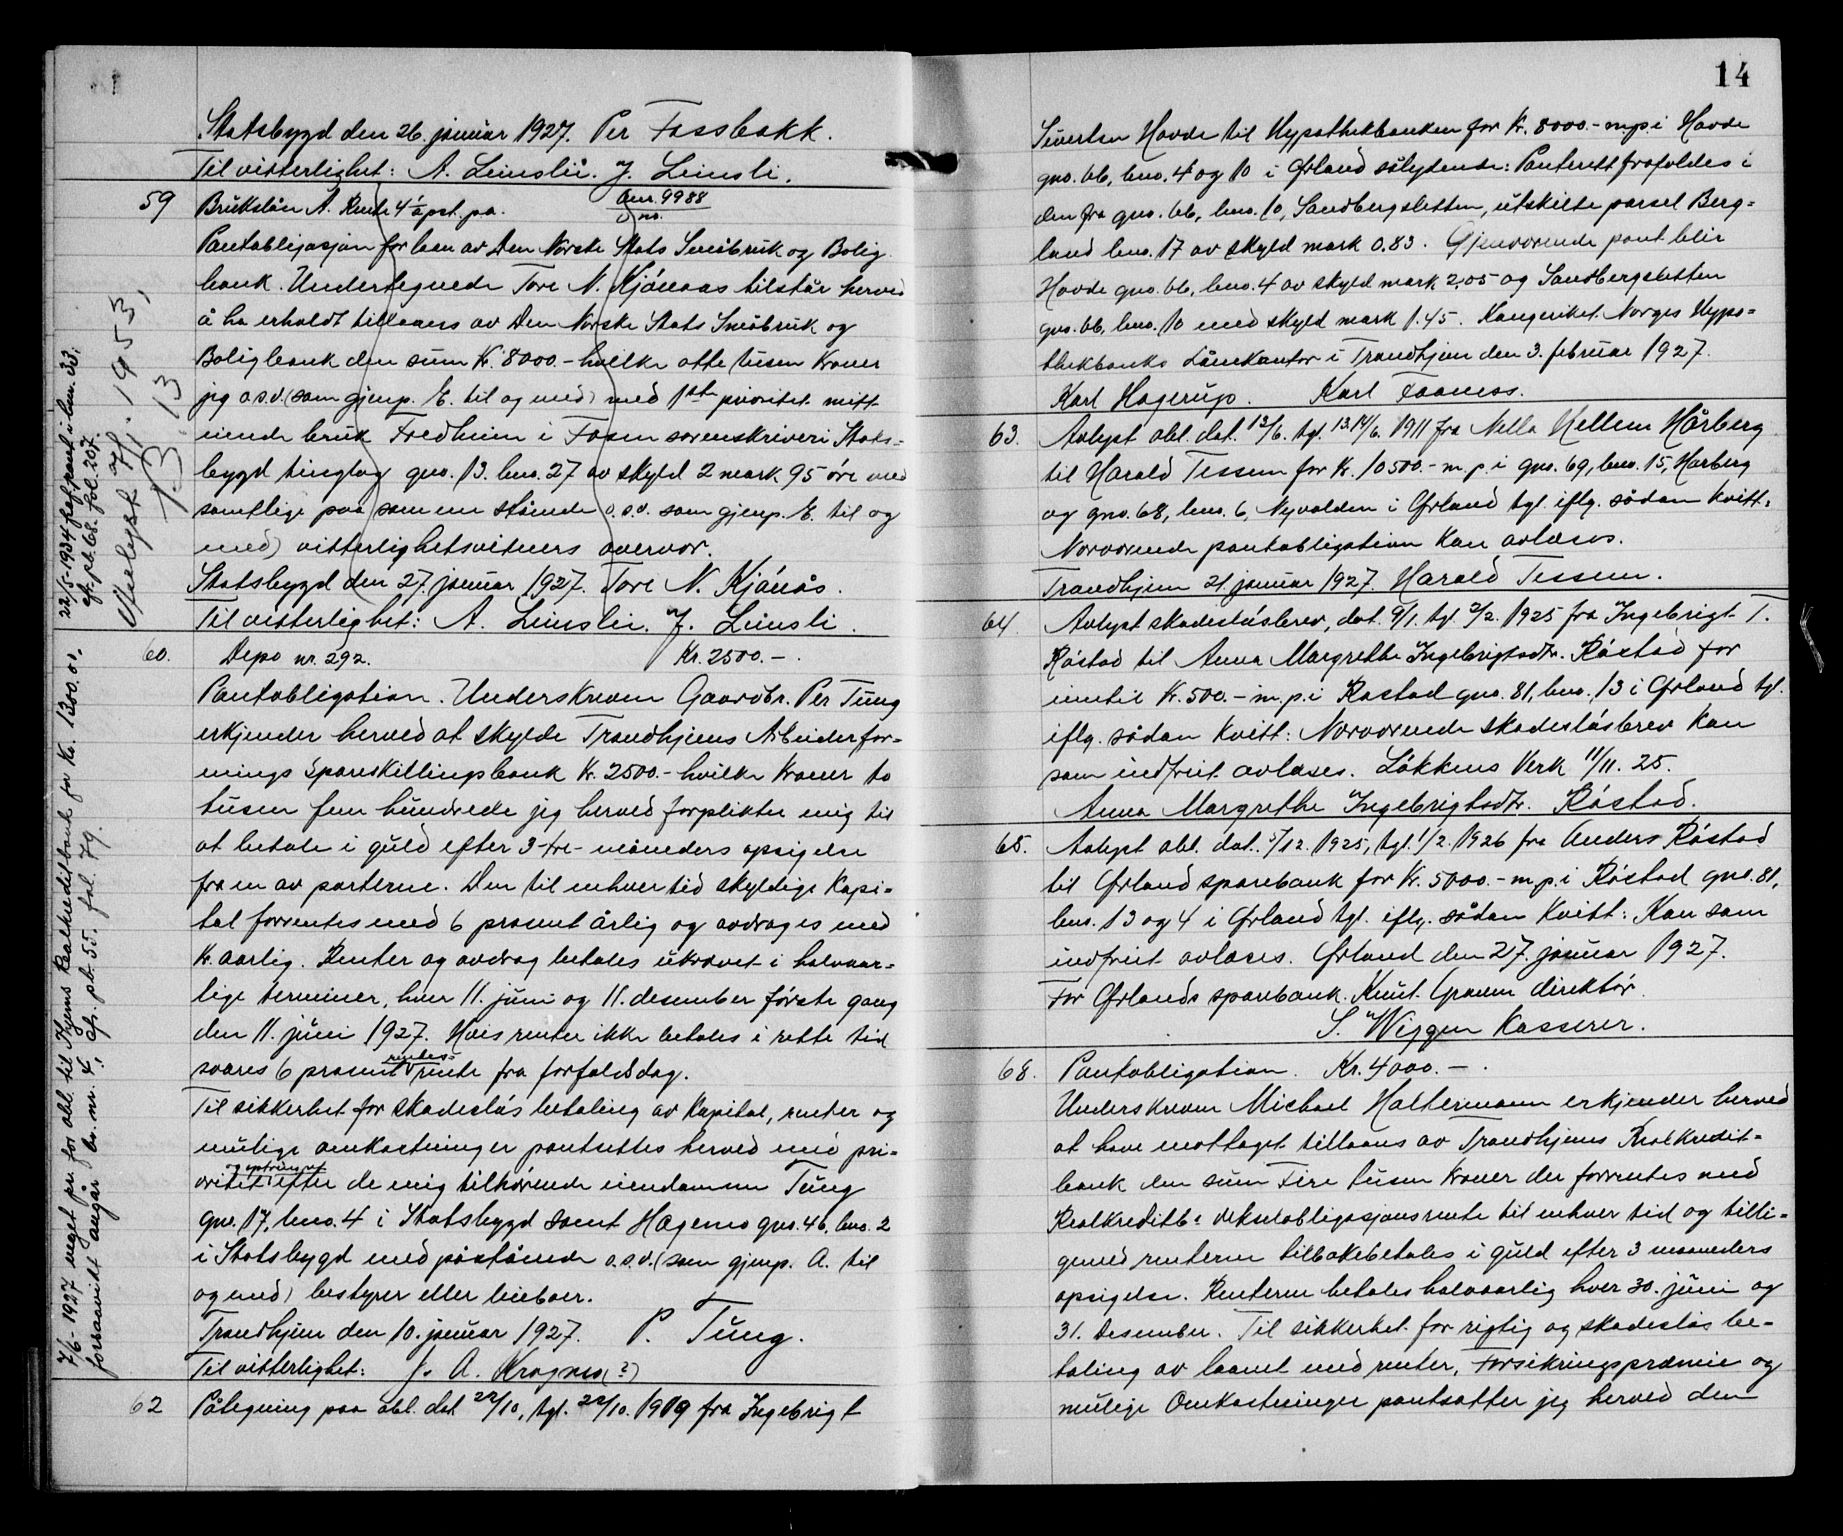 Statsbygd den 26. januar 1927. Per Fossbakk.
Til vitterlighet: A. Leinslie. J. Leinsli.
59 Brukslån A. Rente 4½ pct. pa. Anr. 9988
no.
Pantobligasjon for laan av Den Norske Stats Småbruk og Bolig
bank. Undertegnede Tore N. Kjönaas tilstår herved
å ha erholdt tillaans av Den Norske Stats Småbruk og
Boligbank den sum Kr. 8000.- hvilke otte tusen Kroner
jeg o.s.v. (som gjenp. E. til og med) med 1ste prioritet mitt
eiende bruk Fredheim i Fosen sorenskriveri Stads-
bygd tinglag gno. 13. bno. 27 av skyld 2 mark 95 öre med
samtlige paa samme stående o.s.v. som gjenp. E. til og
med) vitterlighetsvitners overvær.
Statsbygd den 27. januar 1927. Tore N. Kjönås.
Til vitterlighet: A. Leinslie. J. Leinsli.
22/5-1934 fraf. pant i bnr. 33.
cfr. pb. 68. fol. 207.
Avlyst 7/1. 1953,
13.13
60. Depo nr. 292. Kr. 2500.-
Pantobligation. Underskreven Gaardbr. Per Tung
erkjender herved at skylde Trondhjems Arbeiderfor-
enings Spareskillingsbank Kr. 2500.- hvilke Kroner to
tusen fem hundrede jeg herved forplikter mig til
at betale i guld efter 3-tre- måneders opsigelse
fra en av parterne. Den til enhver tid skyldige Kapi-
tal forrentes med 6 prosent årlig og avdrages med
Kr. aarlig. Renter og avdrag betales ukrævet i halvaar-
lige terminer, hver 11. juni og 11. desember første gang
den 11. juni 1927. Hvis renter ikke betales i rette tid
svares 6 prosent rentes-rente fra forfaldsdag.
Til sikkerhet for skadeslös betaling av Kapital, renter og
mulige omkostninger pantsettes herved med pri-
oritet og optrinsret efter de mig tilhörende eiendommer Tung
gno. 17, bno. 4 i Statsbygd samt Hagemo gno. 46, bno. 2
i Statsbygd med påstående o.s.v. (som gjenp. A. til
og med) bestyrer eller leieboer.
Trondhjem den 10. januar 1927. P. Tung.
Til vitterlighet: J. A. Kragnes (?)
7/6-1927 veget pri for obl. til Thjems Realkreditbank for Kr. 1300.00,
forsaavidt angår br. nr. 4, cfr. pb. 55. fol. 79.
62 Påtegning paa obl. dat 22/10, tgl. 22/10. 1919 fra Ingebrigt
14
Sivertsen Hovde til Hypothekbanken for Kr. 8000.- m.p. i Hovde
gno. 66, bno. 4 og 10 i Ørland sålydende: Panterett frafaldes i
den fra gno. 66, bno. 10, Sandbergsletten, utskilte parsel Berg-
land bno. 17 av skyld mark 0.83. Gjenværende pant blir
Hovde gno. 66, bno. 4 av skyld mark 2,05 og Sandbergsletten
gno. 66, bno. 10 med skyld mark 1.45. Kongeriket Norges Hypo-
thekbanks Lånekontor i Trondhjem den 3. februar 1927.
Karl Hagerup. Karl Faaness.
63. Avlyst obl. dat. 12/6. tgl. 13.14/6. 1911 fra Nella Hellem Hårberg
til Harald Tessem for Kr. 10500.- m.p. i gno. 69, bno. 15, Harberg
og gno. 68, bno. 6, Nyvolden i Ørland tgl. iflg. sådan kvitt:
Nærværende pantobligation kan avlæses.
Trondhjem 21 januar 1927. Harald Tessem.
64. Avlyst skadeslösbrev, dat. 9/1. tgl. 2/2. 1925 fra Ingebrigt T.
Röstad til Anna Margrethe Ingebrigtsdtr. Röstad for
inntil Kr. 500.- m.p. i Rostad gno. 81, bno. 13 i Ørland tgl.
iflg. sådan Kvitt: Nærværende skadeslösbrev kan
som indfriet avlæses. Lökkens Verk 11/11. 25.
Anna Margrethe Ingebrigtsdtr. Röstad.
65. Avlyst obl. dat. 5/12. 1925, tgl. 1/2. 1926 fra Anders Röstad
til Ørland sparebank for Kr. 5000.- m.p. i Röstad gno. 81,
bno. 13 og 4 i Ørland tgl. iflg. sådan Kvitt: Kan som
indfriet avlæses. Ørland den 27. januar 1927.
For Ørlands sparebank. Knut. Graven direktör.
S. Wiggen Kasserer.
68. Pantobligation. Kr. 4000.-.
Underskreven Michael Haltermann erkjender herved
at have mottaget tillaans av Trondhjems Realkredit-
bank den sum Fire tusen Kroner der forrentes med
Realkreditb's vekselobligasjonsrente til enhver tid og tilli-
gemed renterne tilbakebetales i guld efter 3 maaneders
opsigelse. Renterne betales halvaarlig hver 30. juni og
31. desember. Til sikkerhet for rigtig og skadeslös be-
taling av laanet med renter, Forsikringspræmie og
mulige Omkostninger pantsætter jeg herved den